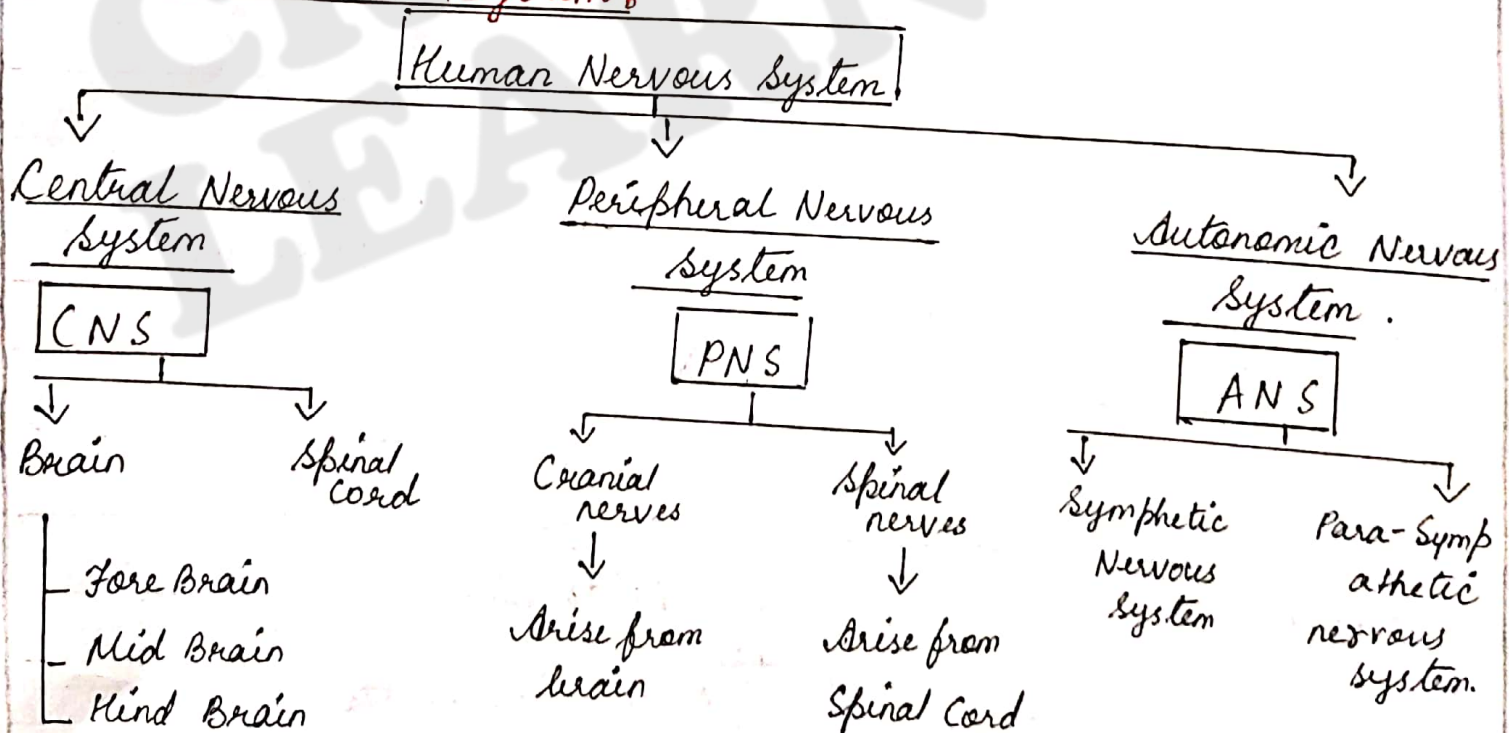 Human Nervous System
Central Nervous
System
CNS
Brain
Spinal
Cord
Fore Brain
Mid Brain
Hind Brain
Peripheral Nervous
System
PNS
Cranial
nerves
Arise from
brain
Spinal
nerves
Arise from
Spinal Cord
Autonomic Nervous
System.
ANS
Symphetic
Nervous
System
Para-Symp
athetic
nervous
system.